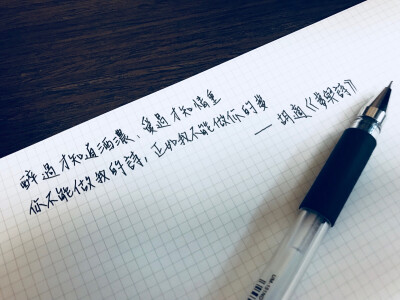 醉過才知道酒濃，愛過才知情重
你不能做我的詩，正如我不能做你的夢
—— 胡適《夢與詩》